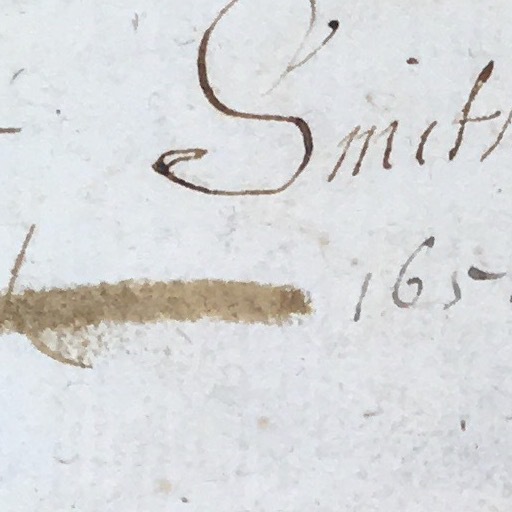 Smith
165